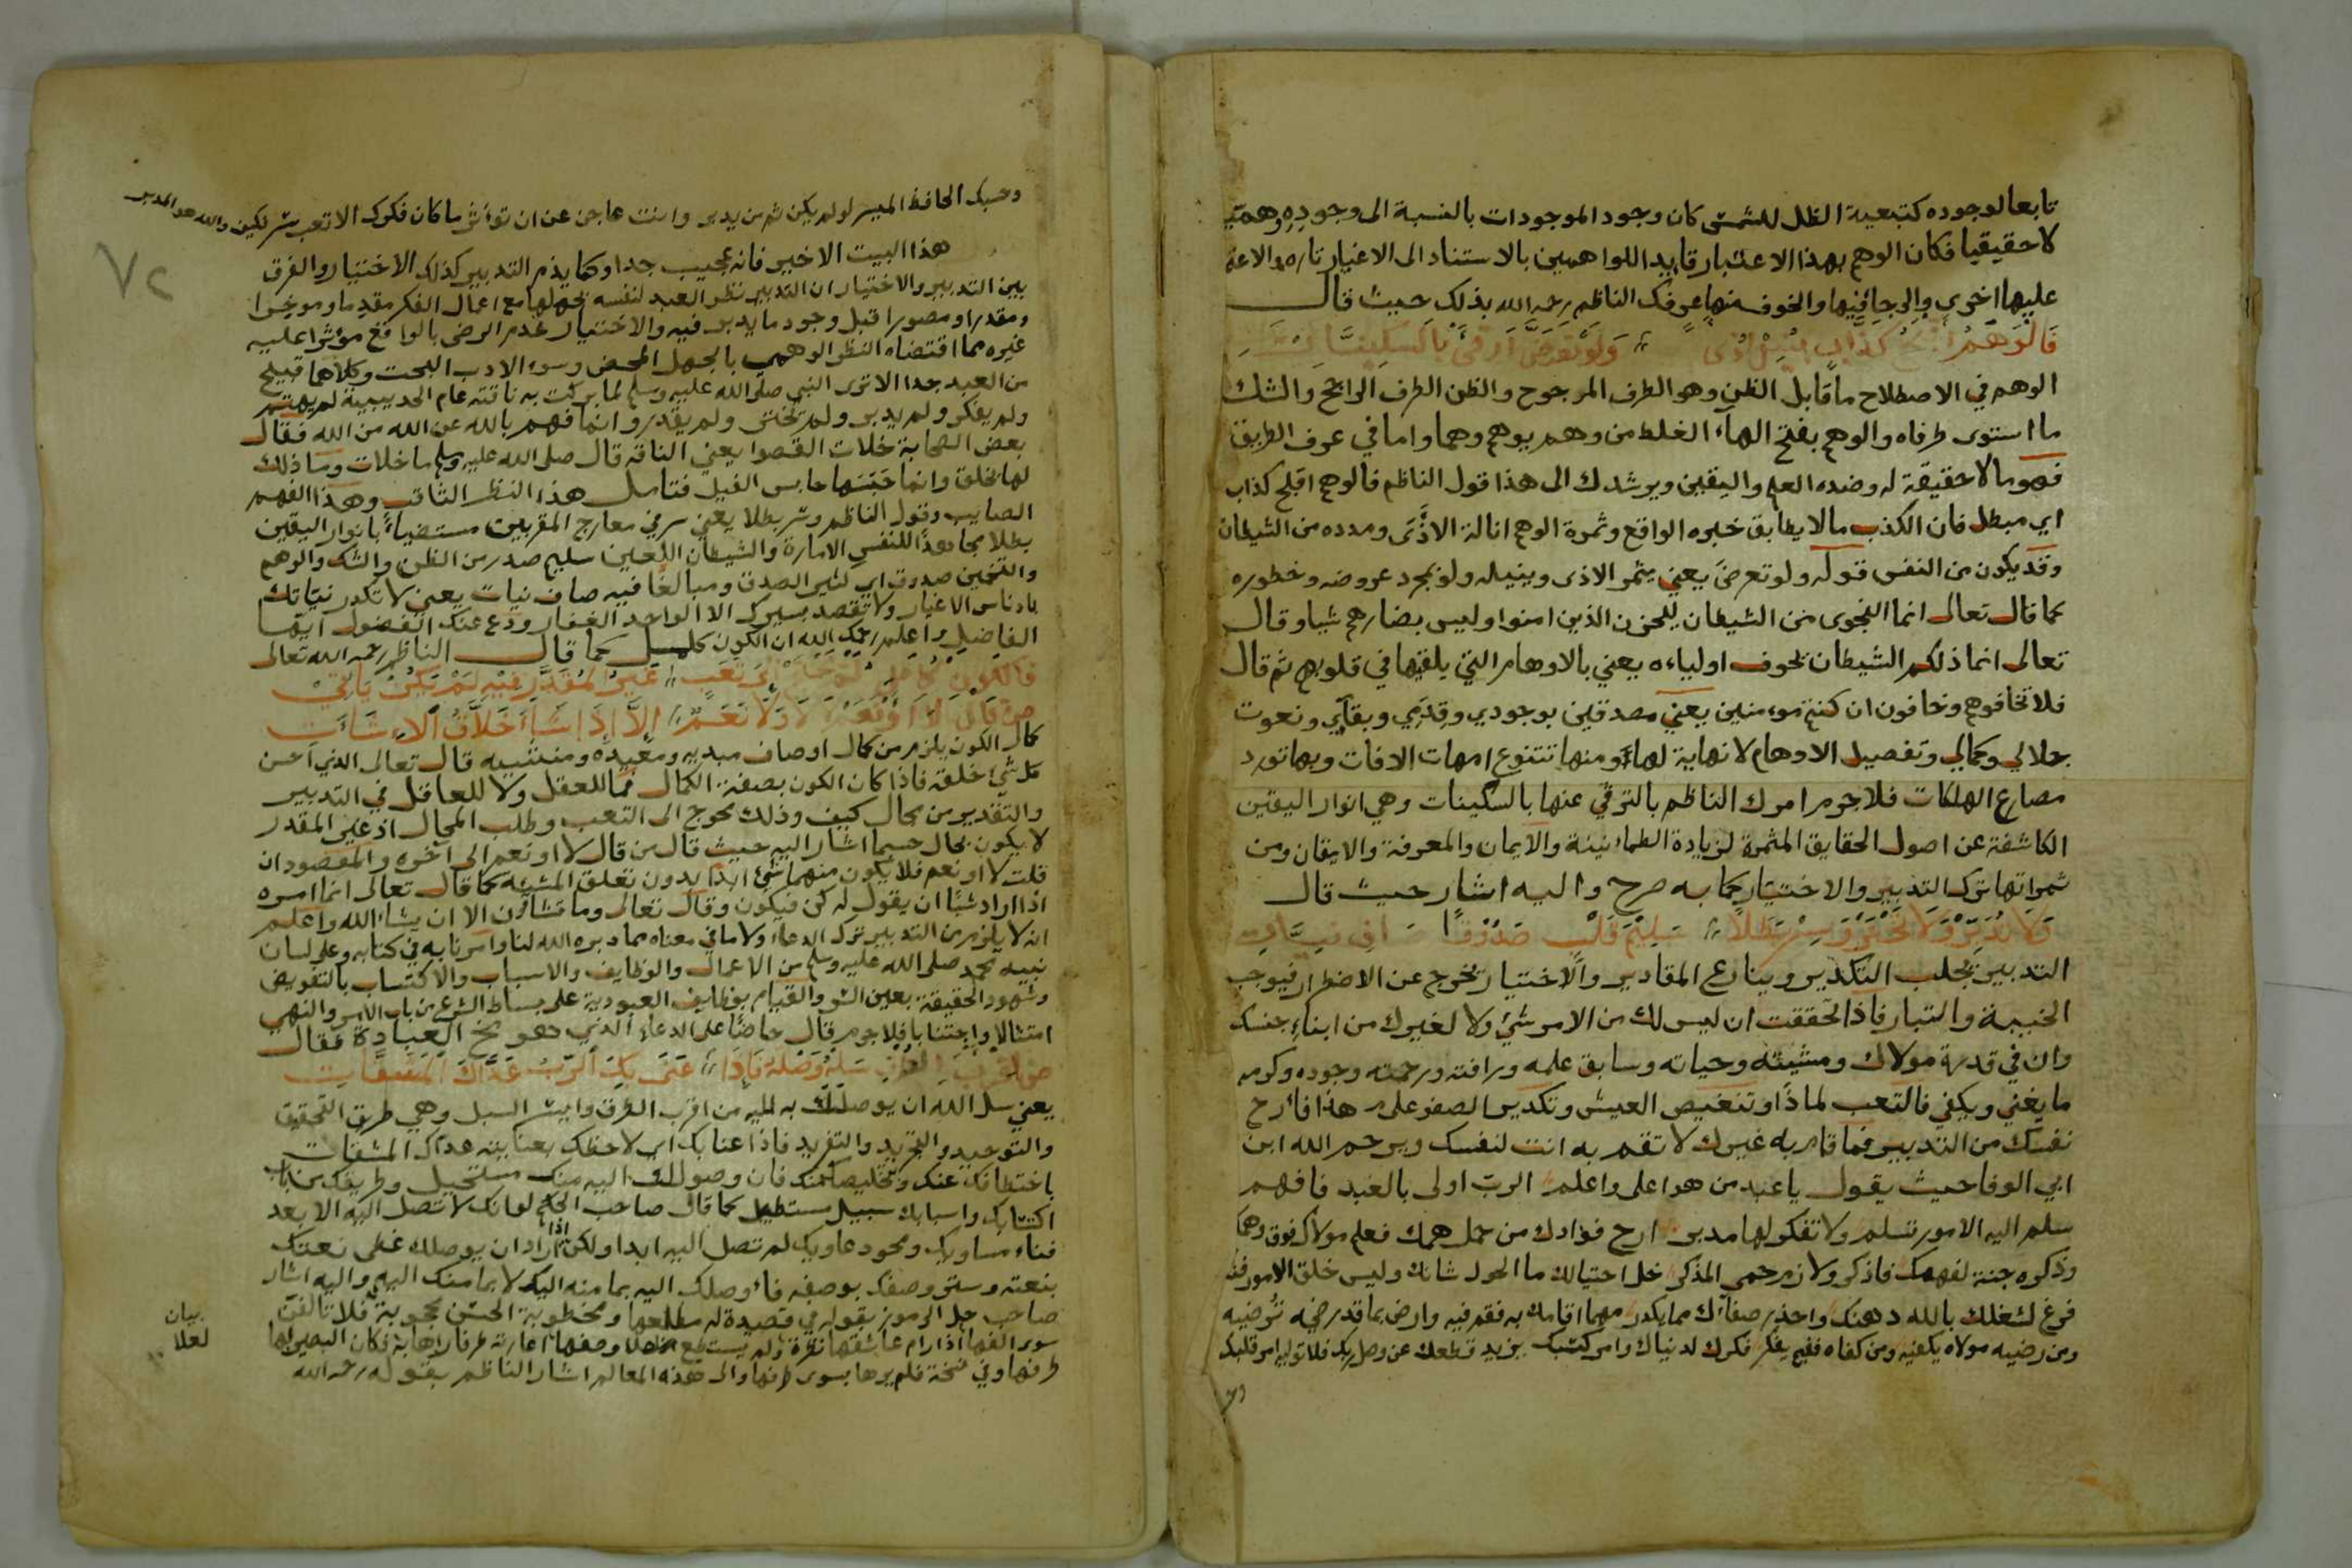 تابعا لوجوده كتبعية الظل للشمس كان وجود الموجودات بالنسبة الى وجوده وهميا
لا حقيقيا فكان الوهم بهذا الاعتبار قايد اللواهمين بالاستناد الى الاغيار تاره والاعتماد
عليها اخرى والرجا فيها والخوف منها عرفك الناظم رحمه الله بذلك حيث قال
فالوهم اقبح كذاب ينيل اذى ولو تعرض ارقى بالسكينات
الوهم في الاصطلاح ما قابل الظن وهو الطرف المرجوح والظن الطرف الراجح والشك
ما استوى طرفاه والوهم بفتح الهاء الغلط من وهم يوهم وهما واما في عرف الطريق
فهو ما لا حقيقة له وضده العلم واليقين ويرشدك الى هذا قول الناظم فالوهم اقبح كذاب
اي مبطل فان الكذب ما لا يطابق خبره الواقع وثمرة الوهم انالة الاذى ومدده من الشيطان
وقد يكون من النفس قوله ولو تعرض يعني يثمر الاذى وينيله ولو بمجرد عروضه وخطوره
كما قال تعالى انما النجوى من الشيطان ليحزن الذين امنوا وليس بضارهم شيا وقال
تعالى انما ذلكم الشيطان يخوف اولياءه يعني بالاوهام التي يلقيها في قلوبهم ثم قال
فلا تخافوهم وخافون ان كنتم مومنين يعني مصدقين بوجودي وقدمي وبقاي ونعوت
جلالي وجمالي وتفصيل الاوهام لا نهاية لها ومنها تتنوع امهات الافات وبها تورد
مصارع الهلكات فلا جرم امرك الناظم بالترقي عنها بالسكينات وهي انوار اليقين
الكاشفة عن اصول الحقايق المثمرة لزيادة الطمانينة والايمان والمعرفة والايقان ومن
ثمراتها ترك التدبير والاختيار كما به صرح واليه اشار حيث قال
ولا تدبر ولا تختر وسر بطلا سليم قلب صدوقا صاف نيات
التدبير يجلب التكدير وينازع المقادير والاختيار يخرج عن الاضطرار فيوجب
الخيبة والتبار فاذا تحققت ان ليس لك من الامر شئ ولا لغيرك من ابناء جنسك
وان في قدرة مولاك ومشيئته وحياته وسابق علمه ورافته ورحمته وجوده وكرمه
ما يغني ويكفي فالتعب لماذا وتنغيص العيش وتكدير الصفو على م هذا فارح
نفسك من التدبير فما قام به غيرك لا تقم به انت لنفسك ويرحم الله ابن
ابي الوفا حيث يقول يا عبد من هو اعلى واعلم الرب اولى بالعبد فافهم
سلم اليه الامور تسلم ولا تفكر لها مدبر ارح فؤادك من حمل همك فعلم مولاك فوق وهمك
وذكره جنة لفهمك فاذكر ولازم حمى المذكر خل احتيالك ما الحول شانك وليس خلق الامور
فرغ لشغلك بالله ذهنك واحذر صفاك مما يكدر مهما اقامك به فقم فيه وارض بما قد رضيه ترضيه
ومن رضيه مولاه يكفيه ومن كفاه ففيم يفكر فكرك لدنياك وامر كتبك يزيد قطعك عن وصل ربك فلا تولي امر قلبك

وحسبك الحافظ الميسر لو لم يكن ثم من يدبر وانت عاجز عن ان تؤثر ما كان فكرك الا تعب سر لكن والله هو المدبر
هذا البيت الاخير فانه عجيب جدا وكما يذم التدبير كذلك الاختيار والفرق
بين التدبير والاختيار ان التدبير نظر العبد لنفسه بجهلها مع اعمال الفكر مقدما وموخرا
ومقدرا ومصورا قبل وجود ما يدبر فيه والاختيار عدم الرضى بالواقع مؤثرا عليه
غيره مما اقتضاه النظر الوهمي بالجهل المحض وسوء الادب البحت وكلاهما قبيح
من العبد جدا الا ترى النبي صلى الله عليه وسلم لما بركت به ناقته عام الحديبية لم يهتم
ولم يفكر ولم يدبر ولم يختر ولم يقدر وانما فهم بالله عن الله من الله فقال
بعض الصحابة خلات القصوا يعني الناقة قال صلى الله عليه وسلم ما خلات وما ذلك
لها بخلق وانما حبسها حابس الفيل فتامل هذا النظر الثاقب وهذا الفهم
الصايب وقول الناظم وسر بطلا يعني سر في معارج المقربين مستضياء بانوار اليقين
بطلا مجاهدا للنفس الامارة والشيطان اللعين سليم صدر من الظن والشك والوهم
والتخمين صدوق اي كثير الصدق ومبالغا فيه صاف نيات يعني لا تكدر نياتك
بادناس الاغيار ولا تقصد بسيرك الا الواحد الغفار ودع عنك الفضول ايها
الفاضل واعلم رحمك الله ان الكون كامل كما قال الناظم رحمه الله تعالى
فالكون كامل لا تحتج الى تعب غير المقدر فيه لم يكن ياتي
من قال لا او نعم لا لا ولا نعم الا اذا شا خلاق الاشاات
كمال الكون يلزم من كمال اوصاف مبديه ومعيده ومنشيه قال تعالى الذي احسن
كل شئ خلقه فاذا كان الكون بصفة الكمال فما للعقل ولا للعاقل في التدبير
والتقدير من مجال كيف وذلك يحوج الى التعب وطلب المحال اذ غير المقدر
لا يكون بحال حسبما اشار اليه حيث قال من قال لا او نعم الى اخره والمقصود ان
قلت لا او نعم فلا يكون منهما شئ ابدا بدون تعلق المشيئه كما قال تعالى انما امره
اذا اراد شيئا ان يقول له كن فيكون وقال تعالى وما تشاؤن الا ان يشاء الله واعلم
انه لا يلزم من التدبير ترك الدعاء ولا ما في معناه مما دبره الله لنا وامرنا به في كتابه وعلى لسان
نبيه محمد صلى الله عليه وسلم من الاعمال والوظايف والاسباب والاكتساب بالتفويض
وشهود الحقيقة بعين السر والقيام بوظايف العبودية على بساط الشرع من باب الامر والنهي
امتثالا واجتنابا فلا جرم قال حاضا على الدعاء الذي هو مخ العبادة فقال
من اقرب الطرق سله وصله فاذا عنى بك الرب عداك المشقات
يعني سل الله ان يوصلك به اليه من اقرب الطرق وايسر السبل وهي طريق التحقيق
والتوحيد والتجريد والتفريد فاذا عنا بك اي لاحظك بعنايته عداك المشقات
باختطافك عنك وتخليصك منك فان وصولك اليه منك مستحيل وطريقك من باب
اكتسابك واسبابك سبيل مستطيل كما قال صاحب الحكم لو انك لا تصل اليه الا بعد
فناء مساويك ومحو دعاويك لم تصل اليه ابدا ولكن اذا اراد ان يوصلك غطى نعتك
بنعته وستر وصفك بوصفه فاوصلك اليه بما منه اليك لا بما منك اليه واليه اشار
صاحب حل الرموز بقوله في قصيدة له مطلعها ومخطوبة الحسن محجوبة فلا تالفن
سوى الفها اذا رام عاشقها نظرة ولم يستطع اعارته طرفا راها به فكان البصير لها
طرفها وفي نسخة فلم يرها بسوى طرفها والى هذه المعالم اشار الناظم بقوله رحمه الله
بيان
لعلا
٧٢